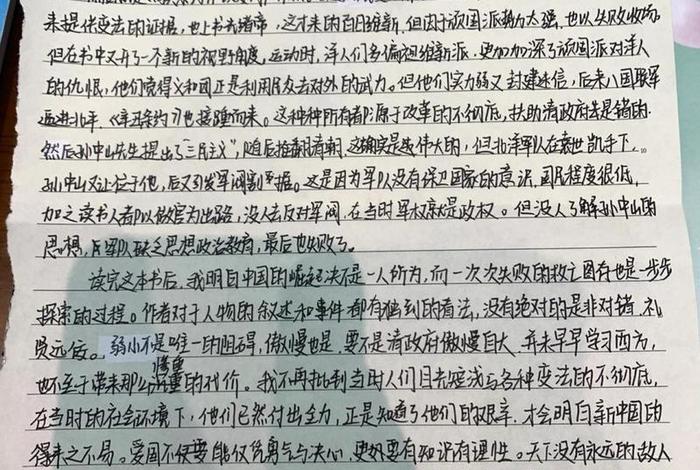 来提供变法的证据，也上书光绪帝，这才来的百日维新，但因于顽固派势力太强，也以失败收场。
但在书中又开了一个新的视野角度，运动时，洋人们多偏袒维新派，更加加深了顽固派对洋人
的仇恨，他们觉得义和团正是利用民众去对外的武力。但他们实力弱又封建迷信，后来八国联军
逼进北平，《辛丑条约》也接踵而来。这种种所有都源于改革的不彻底，扶助清政府去是错的。
然后孙中山先生提出了"三民主义"，随后推翻清朝，这确实是伟大的，但北洋军队在袁世凯手下，
孙中山又让位于他，后又引发军阀割据。这是因为军队没有保卫国家的意识，国民程度很低，
加之读书人都以做官为出路，没人去反对军阀，在当时军权就是政权。但没人了解孙中山的
思想，且军队缺乏思想政治教育，最后也失败了。
读完这本书后，我明白中国的崛起决不是一人所为，而一次次失败的救亡图存也是一步步
探索的过程。作者对于人物的叙述和事件都有独到的看法，没有绝对的是非对错，礼
贤远佞。弱小不是唯一的阻碍，傲慢也是，要不是清政府傲慢自大，并未早早学习西方，
也不至于带来那么惨重的代价。我不再批判当时人们目光短浅与各种变法的不彻底，
在当时的社会环境下，他们已然付出全力，正是知道了他们的艰辛，才会明白新中国的
得来之不易。爱国不仅要能仅凭勇气与决心，更如要有知识有理性。天下没有永远的敌人